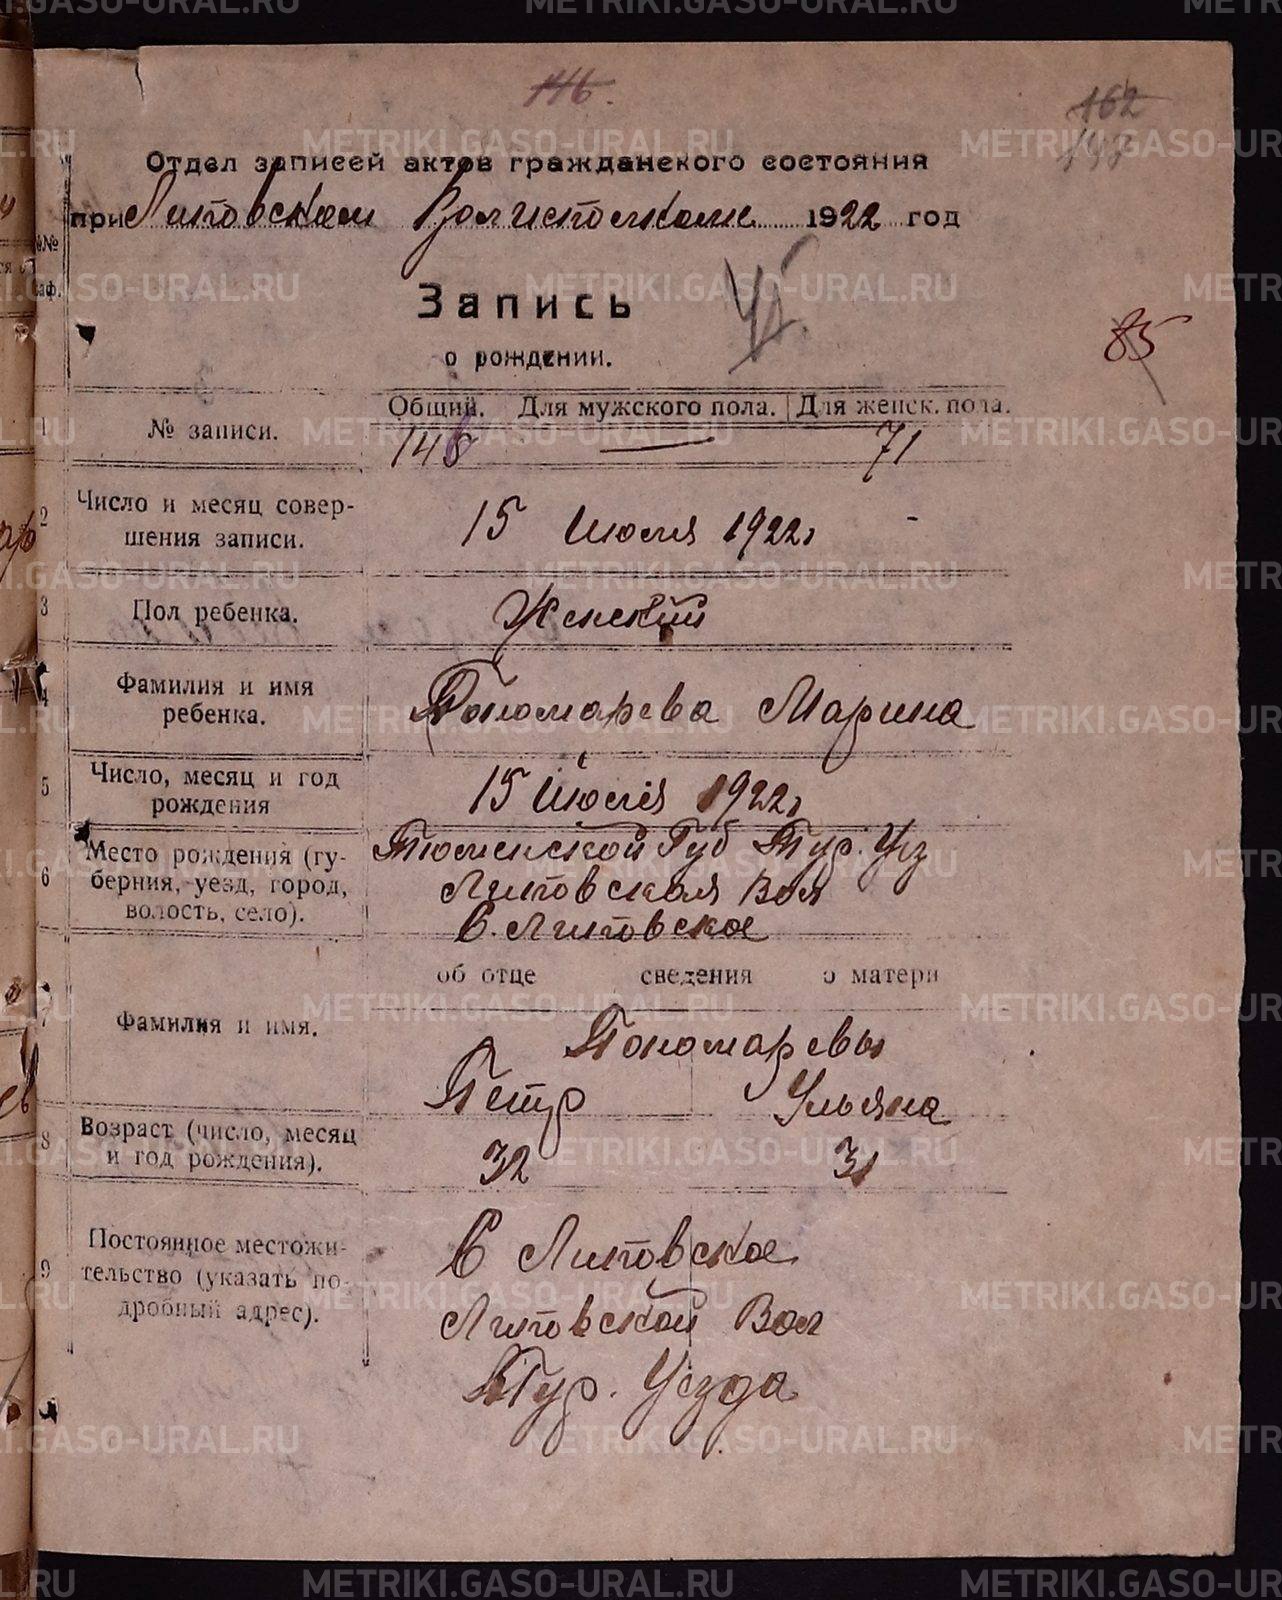 146.
162
Отдел записей актов гражданского состояния
при Липовском Волисполкоме 1922 год
№№
Запись
о рождении.
85
Общий. Для мужского пола. Для женск. пола.
1 № записи. 146 — 71
2 Число и месяц совер-
шения записи. 15 Июля 1922г
3 Пол ребенка. Женский
4 Фамилия и имя
ребенка. Пономарева Марина
5 Число, месяц и год
рождения 15 Июля 1922г
6 Место рождения (гу-
берния, уезд, город,
волость, село). Тюменской Губ Тур. Уез
Липовская Вол
С. Липовское
об отце сведения о матери
7 Фамилия и имя. Пономаревы
Петр Ульяна
8 Возраст (число, месяц
и год рождения). 32 31
9 Постоянное местожи-
тельство (указать по-
дробный адрес). С Липовское
Липовской Вол
Тур. Уезда
METRIKI.GASO-URAL.RU